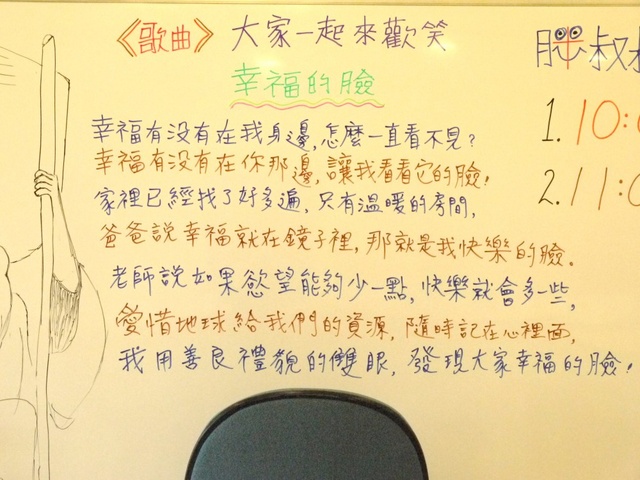 《歌曲》 大家一起來歡笑
幸福的臉
幸福有沒有在我身邊,怎麼一直看不見?
幸福有沒有在你那邊,讓我看看它的臉!
家裡已經找了好多遍,只有溫暖的房間,
爸爸說幸福就在鏡子裡,那就是我快樂的臉。
老師說如果慾望能夠少一點,快樂就會多一些,
愛惜地球給我們的資源,隨時記在心裡面,
我用善良禮貌的雙眼,發現大家幸福的臉!
胖叔
1. 10:
2. 11: